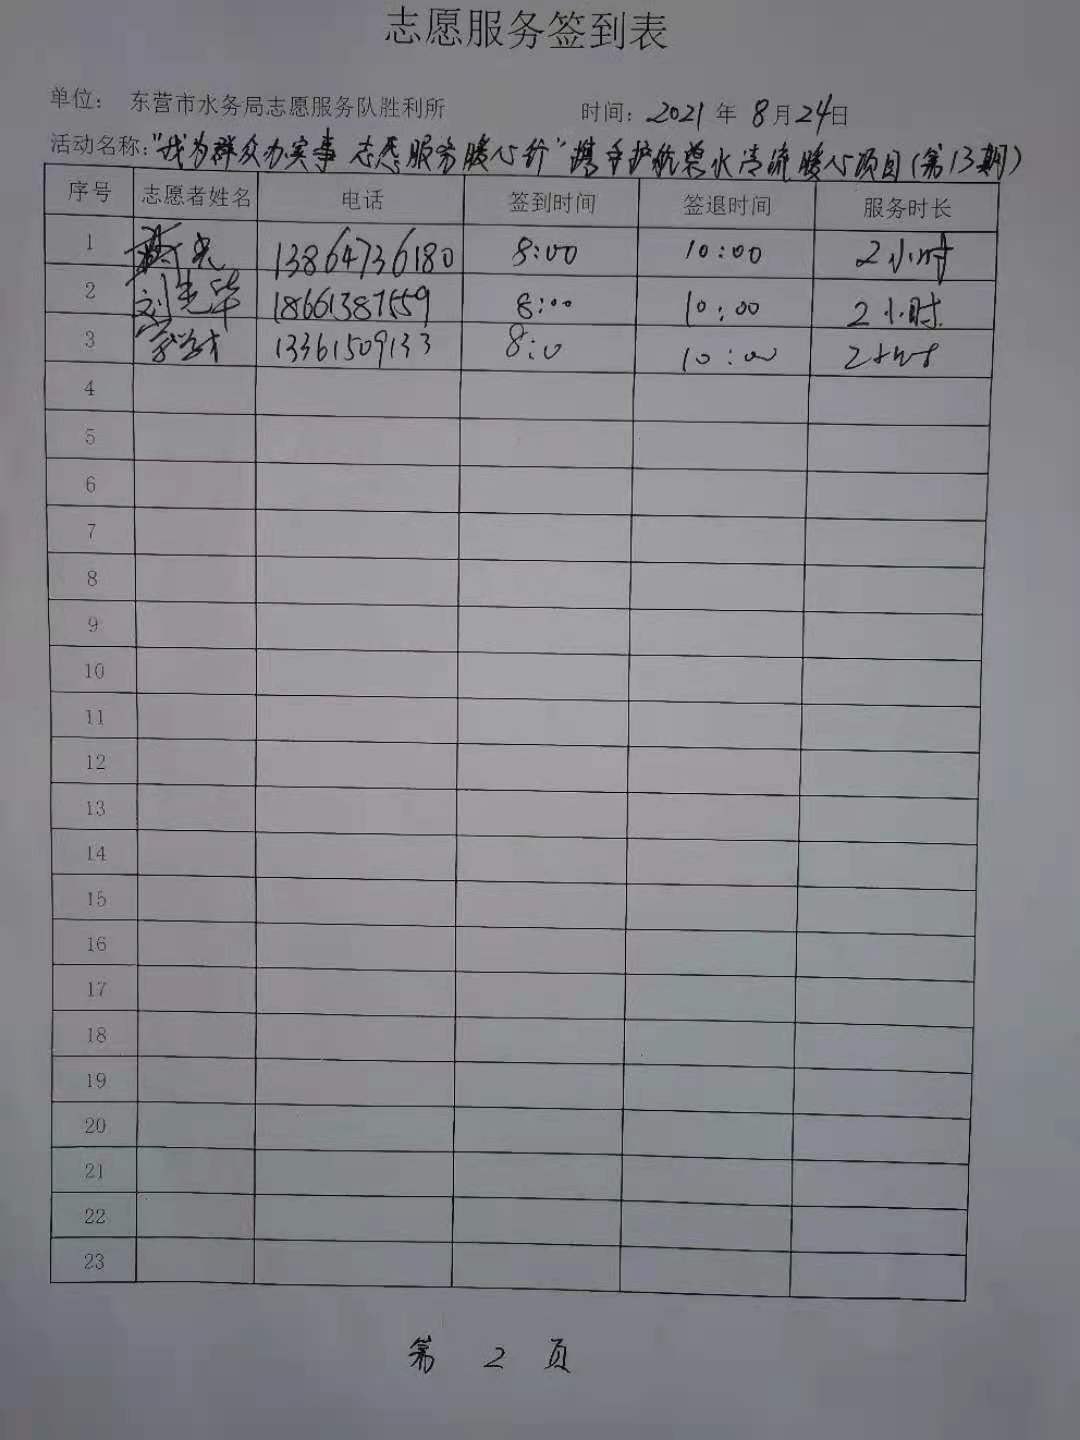 志愿服务签到表
单位： 东营市水务局志愿服务队胜利所 时间：2021年8月24日
活动名称："我为群众办实事 志愿服务暖心行"携手护航 水清流暖心项目(第13期)
序号 志愿者姓名 电话 签到时间 签退时间 服务时长
1 13864736180 8:00 10:00 2小时
2 刘光华 18661387559 8:00 10:00 2小时
3 13361509133 8:0 10:00 2小时
4
5
6
7
8
9
10
11
12
13
14
15
16
17
18
19
20
21
22
23
第 2 页